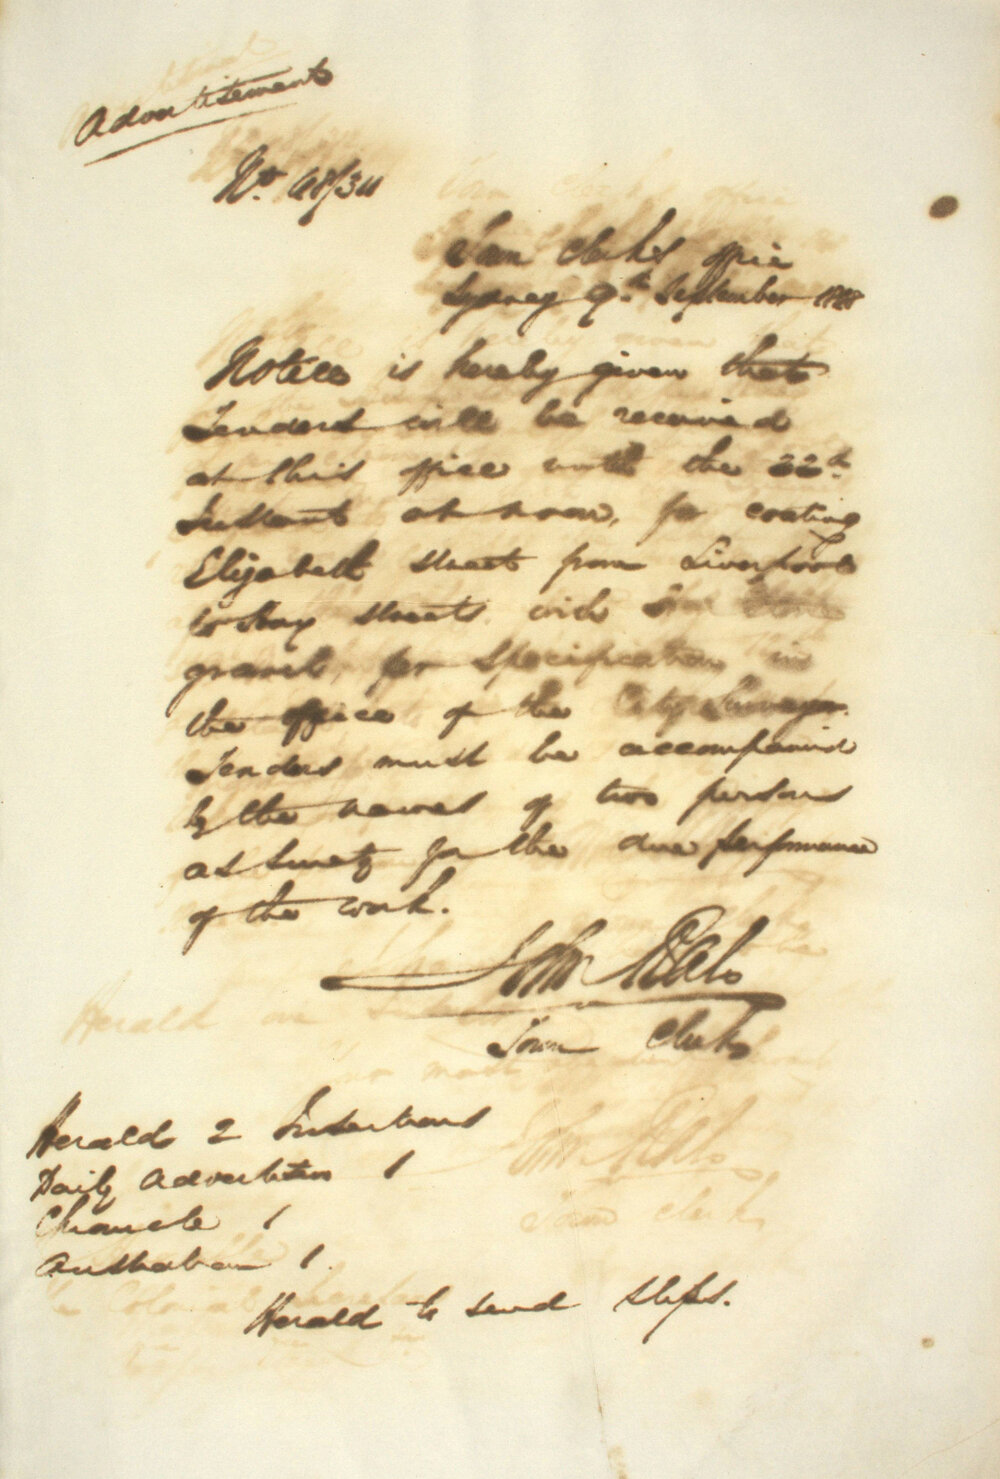 Advertisement
No. 48/34
Town Clerk's office
Sydney 9th September 1848
Notice is hereby given that
Tenders will be received
at this office until the 22nd
Instant at noon, for coating
Elizabeth Street from Liverpool
to Hay Streets with
gravel, per Specification in
the office of the City Surveyor.
Tenders must be accompanied
by the names of two persons
as Surety for the due performance
of the work.
John
Town Clerk
Herald 2 Insertions
Daily Advertiser 1
Chronicle 1
Australian 1.
Herald to send slips.